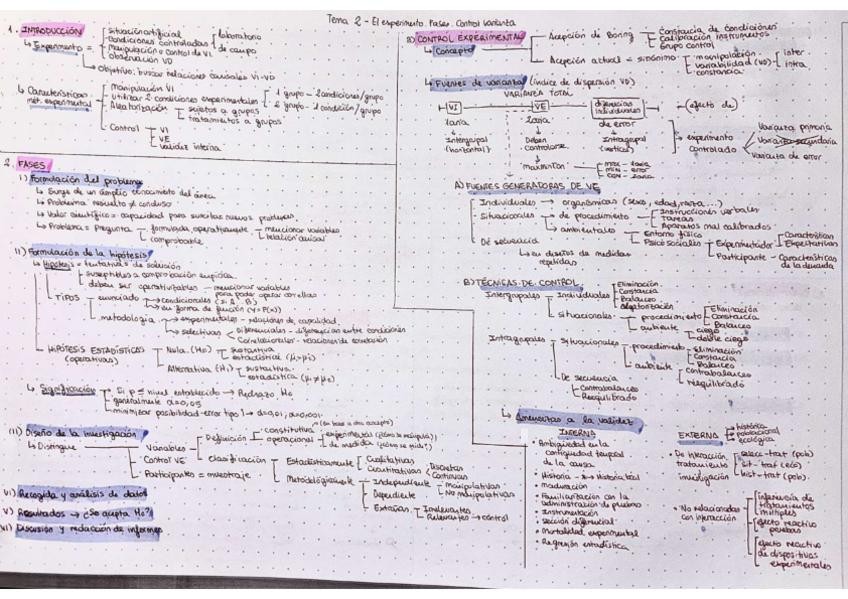 Tema 2 - El experimento. Fases. Control Varianza
1. INTRODUCCIÓN
↳ Experimento =
situación artificial
condiciones controladas
manipulación o control de VI
observación VD
laboratorio
de campo
↳ Objetivo: buscar relaciones causales VI-VD
↳ Características mét. experimental
manipulación VI
Utilizar 2 condiciones experimentales
1 grupo - 2 condiciones/grupo
2 grupo - 1 condición/grupo
Aleatorización
sujetos a grupos
tratamientos a grupos
Control
VI
VE
validez interna
2. FASES
I) Formulación del problema
↳ Surge de un amplio conocimiento del área
↳ Problema: resuelto ≠ concluso
↳ Valor científico = capacidad para suscitar nuevos problemas
↳ Problema = Pregunta
formulada operativamente
comprobable
mencionar variables
relación causal
II) Formulación de la hipótesis
↳ Hipótesis = tentativas de solución
susceptibles a comprobación empírica
deben ser operativizables
mencionar variables
para poder operar con ellas
TIPOS
enunciado
condicionales (Si A, B)
en forma de función (Y=f(x))
metodología
experimentales - relaciones de causalidad
selectivas
Diferenciales - diferencian entre condiciones
Correlacionales - relaciones de correlación
HIPÓTESIS ESTADÍSTICAS (operativas)
Nula (H₀)
sustantiva
estadística (μᵢ=μⱼ)
Alternativa (H₁)
sustantiva
estadística (μᵢ≠μⱼ)
↳ Significación
Si p = nivel establecido → Rechazo H₀
generalmente α=0,05
minimizar posibilidad error tipo I → α=0,01; α=0,001
III) Diseño de la investigación
↳ Distingue
Variables
Definición
constitutiva
operacional
experimental (¿cómo se manipula?)
de medida (¿cómo se mide?)
Clasificación
Estadísticamente
Cualitativas
Cuantitativas
Discretas
Continuas
Metodológicamente
Independiente
manipulativas
No manipulativas
Dependiente
Extrañas
Irrelevantes
Relevantes → control
Control VE
Participantes = muestreo
VI) Recogida y análisis de datos
V) Resultados → ¿Se acepta H₀?
VI) Discusión y redacción de informes
CONTROL EXPERIMENTAL
↳ Concepto
Acepción de Boring
Constancia de condiciones
Calibración instrumentos
Grupo control
Acepción actual = sinónimo
manipulación
variabilidad (VD)
constancia
inter
intra
↳ Fuentes de varianza (índice de dispersión VD)
VARIANZA TOTAL
VI
VE
diferencias individuales
(efecto de)
de error
Intergrupal (horizontal)
Deben controlarse
Intragrupal (vertical)
maxmincon
MAX -
MIN - error
CON -
experimento controlado
Varianza primaria
Varianza secundaria
Varianza de error
A) FUENTES GENERADORAS DE VE
Individuales → orgánicas (sexo, edad, raza...)
Situacionales
de procedimiento
Instrucciones verbales
Tareas
Aparatos mal calibrados
ambientales
Entorno físico
Psicosociales
Experimentador
Características
Expectativas
Participante - Características de la demanda
De secuencia
↳ en diseños de medidas repetidas
B) TÉCNICAS DE CONTROL
Intergrupales
Individuales
Eliminación
Constancia
Balanceo
Aleatorización
situacionales
procedimiento
Eliminación
Constancia
Balanceo
ambiente
ciego
doble ciego
Intragrupales
Situacionales
procedimiento
eliminación
Constancia
Balanceo
ambiente
Contrabalanceo
reequilibrado
De secuencia
Contrabalanceo
Reequilibrado
↳ Amenazas a la validez
INTERNA
• Ambigüedad en la contigüidad temporal de la causa
• Historia → Historia local
• maduración
• Familiarización con la administración de pruebas
• Instrumentación
• Sección diferencial
• Mortalidad experimental
• Regresión estadística
EXTERNA
histórica
poblacional
ecológica
• De interacción tratamiento investigación
selecc-trat (pob)
sit-trat (eco)
hist-trat (pob)
• No relacionadas con interacción
inferencia de tratamientos múltiples
efecto reactivo pruebas
efecto reactivo de dispositivos experimentales